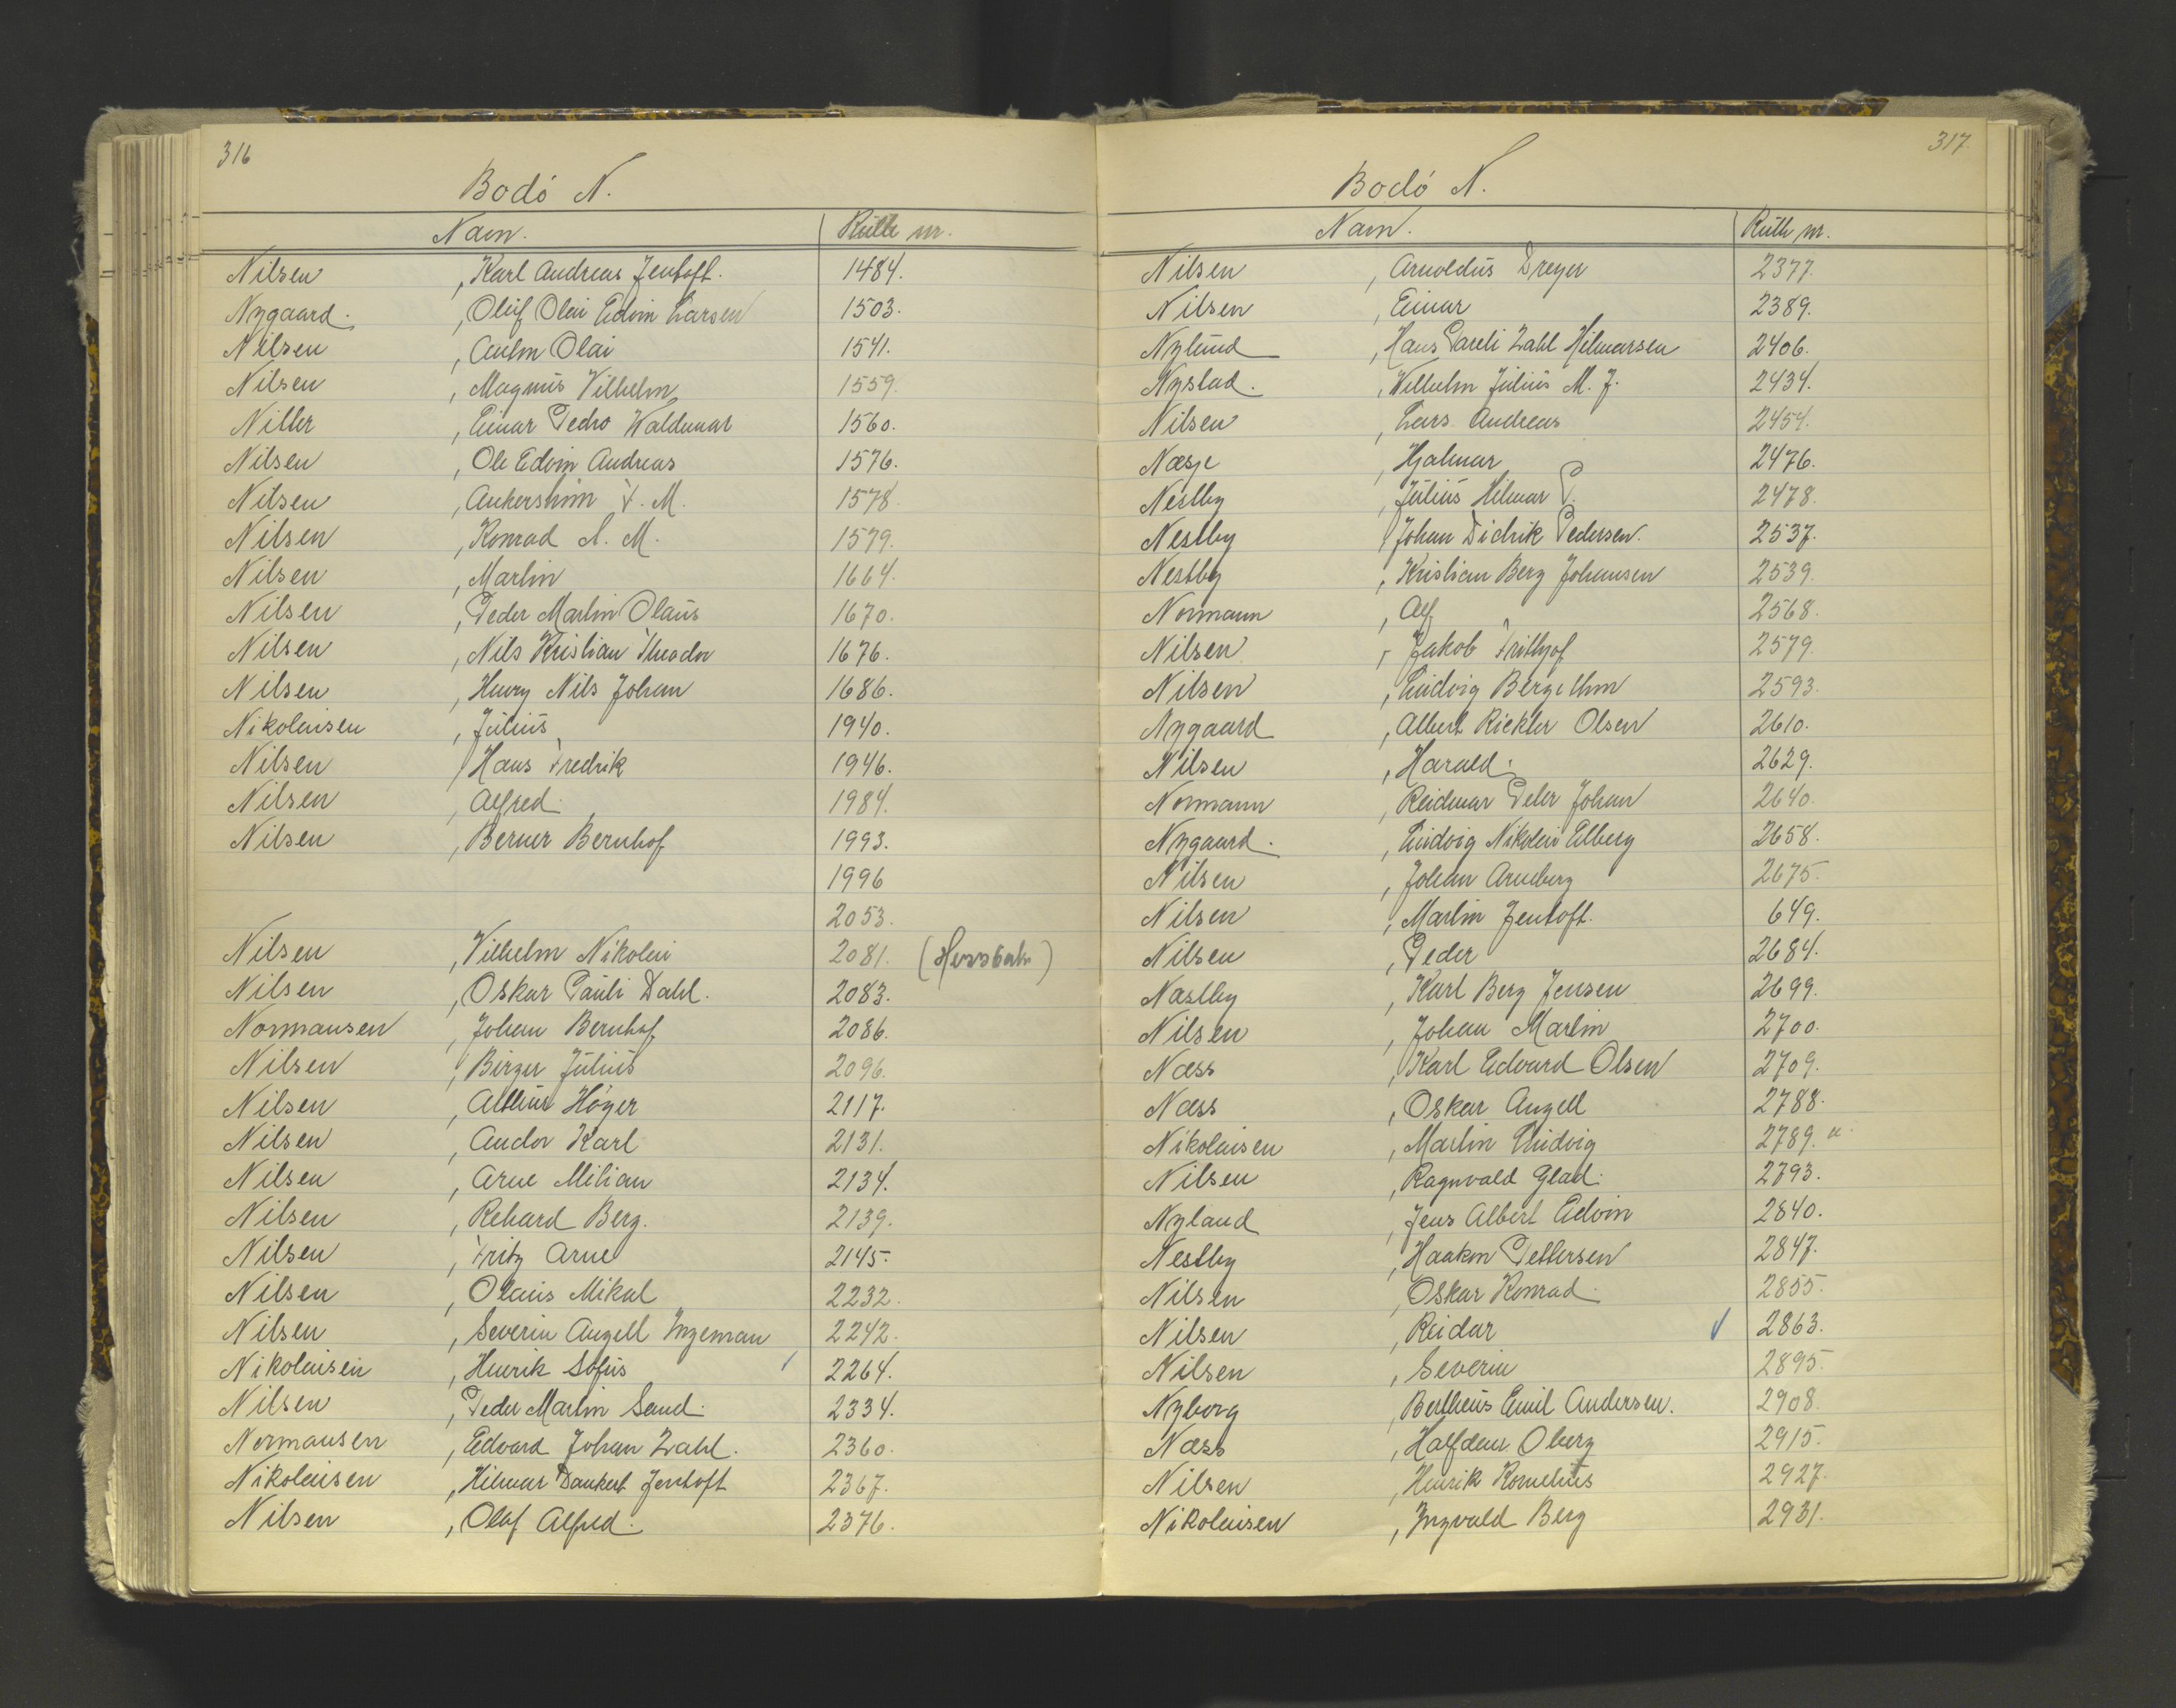 316
Bodó N.
Navn. Rulle nr.
Nilsen , Karl Andreas Jentoft. 1484.
Nygaard. , Oluf Olai Edvin Larsen 1503.
Nilsen , Anton Olai 1541.
Nilsen , Magnus Vilhelm 1559.
Nitter , Einar Pedro Waldemar 1560.
Nilsen , Ole Edvin Andreas 1576.
Nilsen , Ankershim F. M. 1578.
Nilsen , Konrad S. M. 1579.
Nilsen , Martin 1664.
Nilsen , Peder Martin Olaus 1670.
Nilsen , Nils Kristian Theodor 1676.
Nilsen , Henry Nils Johan 1686.
Nikolaisen , Julius 1940.
Nilsen , Hans Fredrik 1946.
Nilsen , Alfred. 1984.
Nilsen , Berner Bernhof 1993.
1996
2053.
Nilsen , Vilhelm Nikolai 2081. ( )
Nilsen , Oskar Pauli Dahl. 2083.
Normansen , Johan Bernhof 2086.
Nilsen , Birger Julius 2096.
Nilsen , Arthur Höyer 2117.
Nilsen , Andor Karl 2131.
Nilsen , Arne Milian 2134.
Nilsen , Rehard Berg. 2139.
Nilsen , Fritz Arne 2145.
Nilsen , Olaus Mikal 2232.
Nilsen , Severin Angell Ingeman 2242.
Nikolaisen , Henrik Sofus 2264.
Nilsen , Peder Martin Sand. 2334.
Normansen , Edvard Johan Zahl. 2360.
Nikolaisen , Hilmar Dankert Jentoft 2367.
Nilsen , Olaf Alfred. 2376.
317.
Bodó N.
Navn. Rulle nr.
Nilsen , Arnoldus Dreyer 2377.
Nilsen , Einar 2389.
Nylund , Hans Pareli Zahl Hilmarsen 2406.
Nystad. , Wilhelm Julius M. J. 2434.
Nilsen , Lars Andreas 2454.
Næsje , Hjalmar 2476.
Nestby , Julius Hilmar P. 2478.
Nestby , Johan Didrik Pedersen. 2537.
Nestby , Kristian Berg Johansen 2539.
Normann , Alf 2568.
Nilsen , Jakob Frithjof 2579.
Nilsen , Ludvig Bergethon 2593.
Nygaard , Albert Rickter Olsen 2610.
Nilsen , Harald. 2629.
Normann , Reidmar Peter Johan 2640.
Nygaard. , Ludvig Nikolai Elberg 2658.
Nilsen , Johan Arneberg 2675.
Nilsen , Martin Jentoft. 649.
Nilsen , Peder 2684.
Næstby , Karl Berg Jensen 2699.
Nilsen , Johan Martin 2700.
Næss , Karl Edvard Olsen 2709.
Næss , Oskar Angell 2788.
Nikolaisen , Martin Ludvig 2789. a.
Nilsen , Ragnvald Glad. 2793.
Nyland , Jens Albert Edvin 2840.
Nestby , Haakon Pettersen 2847.
Nilsen , Oskar Konrad. 2855.
Nilsen , Reidar ✓ 2863.
Nilsen , Severin 2895.
Nyborg , Bertheus Emil Andersen. 2908.
Næss , Halfdan Oberg 2915.
Nilsen , Henrik Kornelius 2927.
Nikolaisen , Ingvald Berg 2931.